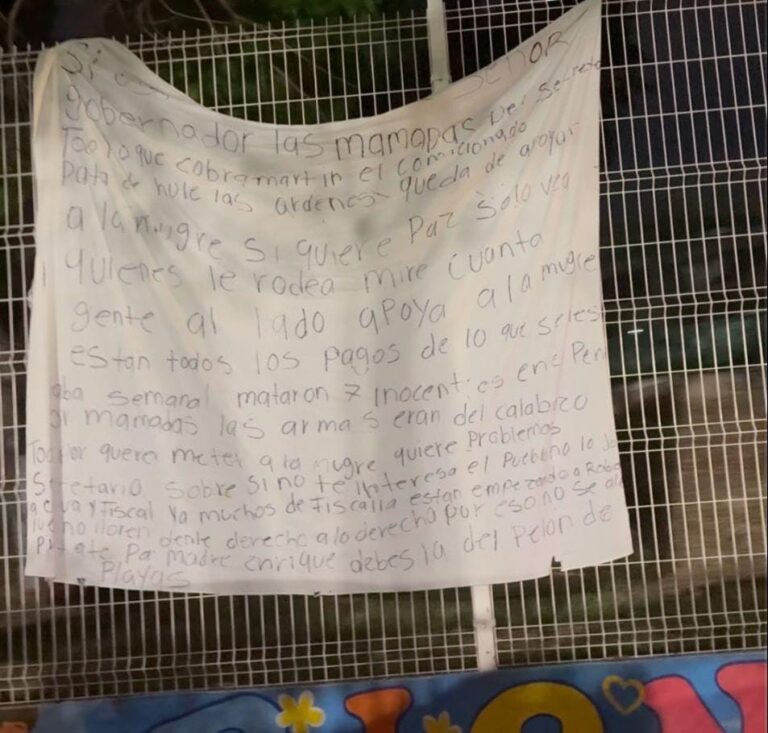 Si SEÑOR
gobernador las mamadas Del Secreta
Todo lo que cobra martin el comicionado
Pata de hule las ardenes queda de apoyar
a la mugre si quiere Paz solo vea
quienes le rodea mire cuanta
gente al lado apoya a la mugre
estan todos los pagos de lo que seles
aba semanal mataron 7 inocentes en
or mamadas las armas eran del calabazo
Todo por querer meter a la mugre quiere problemas
Secretario sobre si no te interesa el Pueblo lo
y Fiscal Ya muchos de Fiscalia estan empezando a Roba
no lloren dente derecho a lo derecho por eso no se
Pa madre enrique debes la del Pelon de
Playas